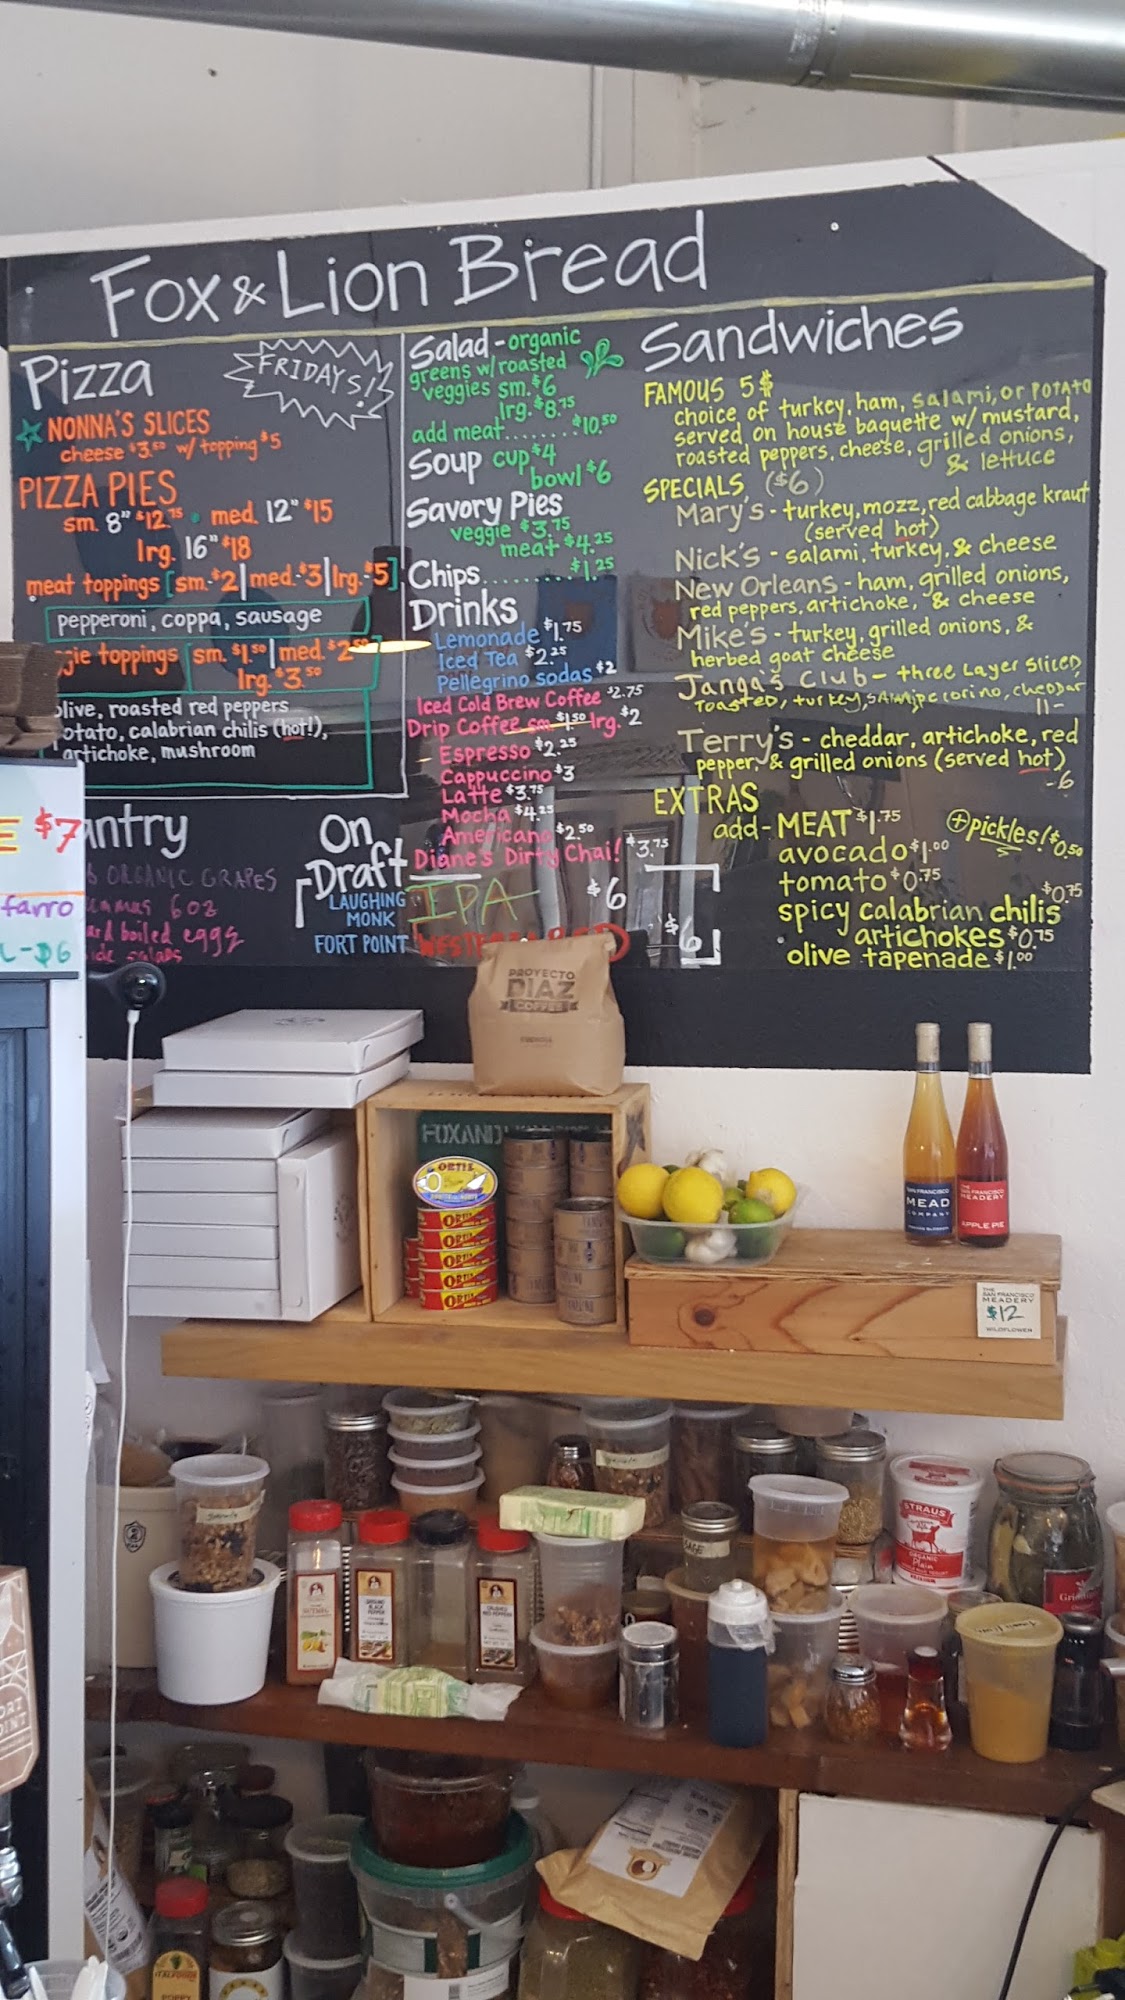 Fox & Lion Bread
Pizza
FRIDAYS!
NONNA'S SLICES
cheese $3.50 w/ topping $5
PIZZA PIES
sm. 8" $12.75 • med. 12" $15
lrg. 16" $18
meat toppings [sm.-$2|med.-$3|lrg.-$5]
pepperoni, coppa, sausage
gie toppings [sm.-$1.50|med.-$2.50
lrg.-$3.50
olive, roasted red peppers
otato, calabrian chilis (hot!),
artichoke, mushroom
Salad - organic
greens w/ roasted
veggies sm. $6
lrg. $8.75
add meat.......$10.50
Soup cup $4
bowl $6
Savory Pies
veggie $3.75
meat $4.25
Chips........$1.25
Drinks
Lemonade $1.75
Iced Tea $2.25
Pellegrino sodas $2
Iced Cold Brew Coffee $2.75
Drip Coffee sm. $1.50 lrg. $2
Espresso $2.25
Cappuccino $3
Latte $3.75
Mocha $4.25
Americano $2.50
Diane's Dirty Chai! $3.75
Sandwiches
FAMOUS 5$
choice of turkey, ham, salami, or POTATO
served on house baguette w/ mustard,
roasted peppers, cheese, grilled onions,
& lettuce
SPECIALS ($6)
Mary's - turkey, mozz, red cabbage kraut
(served hot)
Nick's - salami, turkey, & cheese
New Orleans - ham, grilled onions,
red peppers, artichoke, & cheese
Mike's - turkey, grilled onions, &
herbed goat cheese
Janga's Club - three Layer Sliced,
Toasted, turkey, salami, pecorino, cheddar
11-
Terry's - cheddar, artichoke, red
pepper, & grilled onions (served hot)
-6
EXTRAS
add - MEAT $1.75
avocado $1.00
tomato $0.75
spicy calabrian chilis $0.75
artichokes $0.75
olive tapenade $1.00
+ pickles! $0.50
antry
ORGANIC GRAPES
6 oz
ard boiled eggs
ide salads
On
Draft
LAUGHING
MONK
IPA
$6
FORT POINT
$6
E $7
farro
L-$6
PROYECTO
DIAZ
COFFEE
FOXAND
ORTIZ
ORTIZ
ORTIZ
ORTIZ
ORTIZ
ORTIZ
SAN FRANCISCO
MEAD
COMPANY
THE
SAN FRANCISCO
MEADERY
APPLE PIE
THE
SAN FRANCISCO
MEADERY
$12
WILDFLOWER
STRAUS
ORGANIC
Plain
NUTMEG
GROUND
BLACK
PEPPER
CRUSHED
RED PEPPER
SAGE
ORT
OINT
POPPY